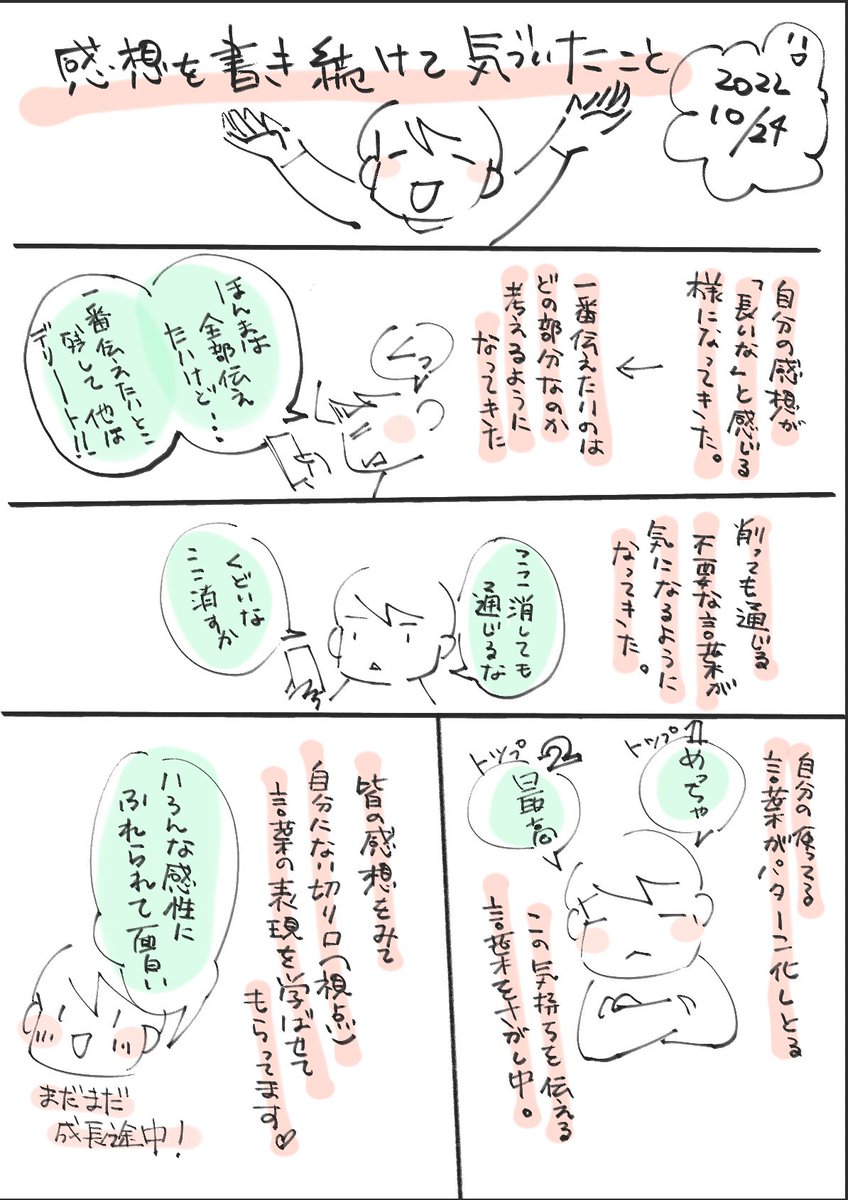 感想を書き続けて気づいたこと
2022
10/24
自分の感想が
「長いな」と感じる
様になってきた。
←
一番伝えたいのは
どの部分なのか
考えるように
なってきた
くっ
ほんまは
全部伝え
たいけど…
一番伝えたいとこ
残して他は
デリート!!
削っても通じる
不要な言葉が
気になるように
なってきた。
ここ消しても
通じるな
くどいな
ここ消すか
自分の使ってる
言葉がパターン化しとる
トップ1
めっちゃ
トップ2
最高
この気持ちを伝える
言葉をさがし中。
皆の感想をみて
自分にない切り口(視点)
言葉の表現を学ばせて
もらってます♡
いろんな感性に
ふれられて面白い
まだまだ
成長途中!